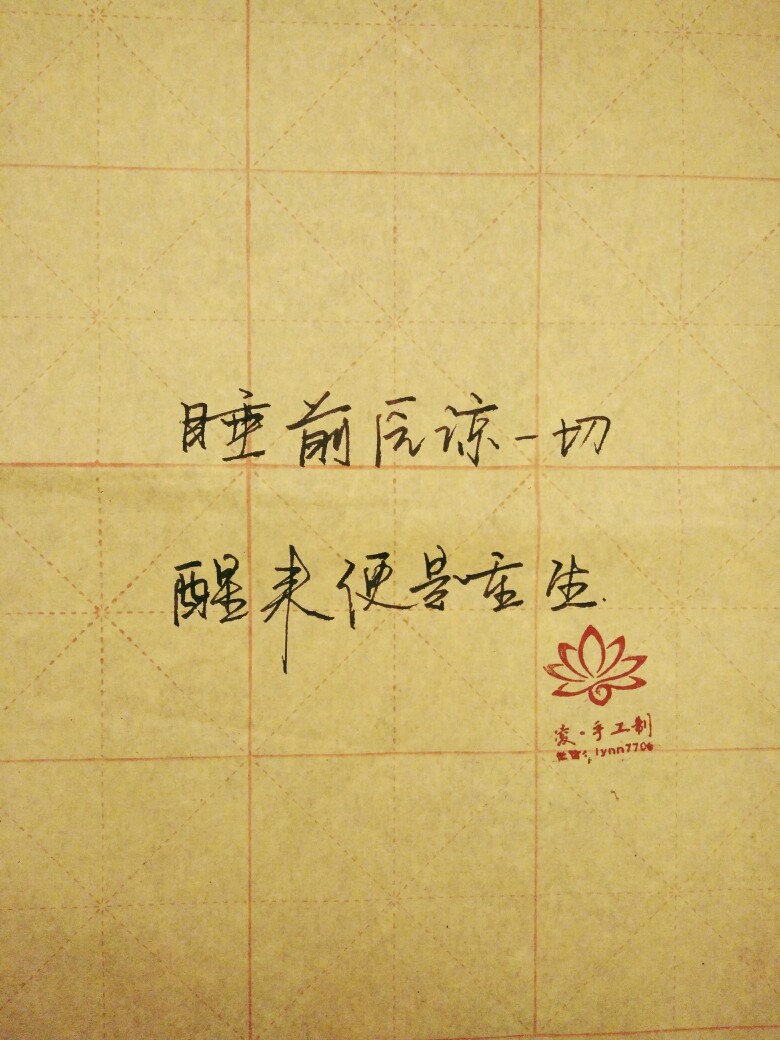 睡前原谅一切
醒来便是重生.
爱·手工制
微信:lynn7706